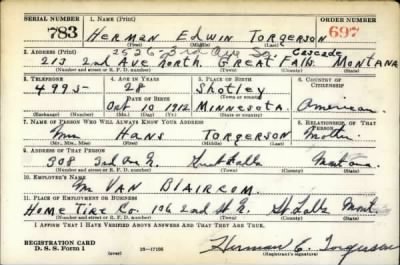 SERIAL NUMBER 1. NAME (Print) ORDER NUMBER
783 HERMAN EDWIN TORGERSON 697
(First) (Middle) (Last)
2526-3rd Ave So. Cascade
2. ADDRESS (Print)
213 2nd Ave North. GREAT Falls MONTANA
(Number and street or R. F. D. number) (Town) (County) (State)
3. TELEPHONE 4. AGE IN YEARS 5. PLACE OF BIRTH 6. COUNTRY OF CITIZENSHIP
4995 28 Shotley
DATE OF BIRTH
Oct 10 1912 MINNESOTA. American
(Exchange) (Number) (Mo.) (Day) (Yr.) (State or country)
7. NAME OF PERSON WHO WILL ALWAYS KNOW YOUR ADDRESS 8. RELATIONSHIP OF THAT PERSON
Mrs HANS TORGERSON Mother
(Mr., Mrs., Miss) (First) (Middle) (Last)
9. ADDRESS OF THAT PERSON
308 3rd Ave N. Great Falls Montana
(Number and street or R. F. D. number) (Town) (County) (State)
10. EMPLOYER'S NAME
Mr VAN BLAIRCOM.
11. PLACE OF EMPLOYMENT OR BUSINESS
HOME TIRE Co. 106 2nd St N. Gt Falls Mont
(Number and street or R. F. D. number) (Town) (County) (State)
I AFFIRM THAT I HAVE VERIFIED ABOVE ANSWERS AND THAT THEY ARE TRUE.
REGISTRATION CARD
D. S. S. Form 1 (over) 16-17105 Herman E. Torgerson
(Registrant's signature)